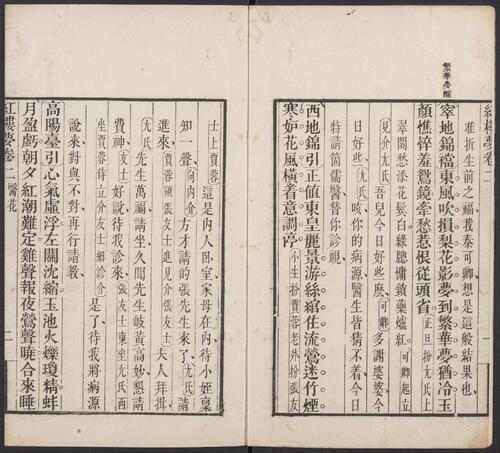 繁華夢醒
紅樓夢卷二 一
准折生前之福我秦可卿想是這般結果也
窣地錦襠東風吹損梨花影夢到繁華夢猶冷玉
顏憔悴羞鸞鏡牽愁惹恨從頭省正旦扮尤氏上
翠閣愁添花髮白綠牕慵鎮藥爐紅可卿起立
見介尤氏吾兒今日好些麼可卿多謝婆婆今
日好些尤氏咳你的病源醫生皆猜不着今日
特請箇儒醫替你診視
西地錦引正値東皇麗景游絲綰住流鶯迷竹煙
寒妬花風横着意調停小生扮賈蓉老外扮張友
士上賈蓉這是内人卧室家母在内待小姪稟
知一聲向内介方才請的張先生來了尤氏請
進來賈蓉領張友士進見介張友士夫人拜揖
尤氏先生萬福請坐久聞先生岐黄高妙懇請
費神友士好說待我診來張友士東坐尤氏西
坐賈蓉侍立介友士細診介是了待我將病源
說來對與不對再行請教
高陽臺引心氣虛浮左關沈縮玉池火爍瓊精蚌
月盈虧朝夕紅潮難定雞聲報夜鶯聲曉合來睡
紅樓夢卷二 醫花 二